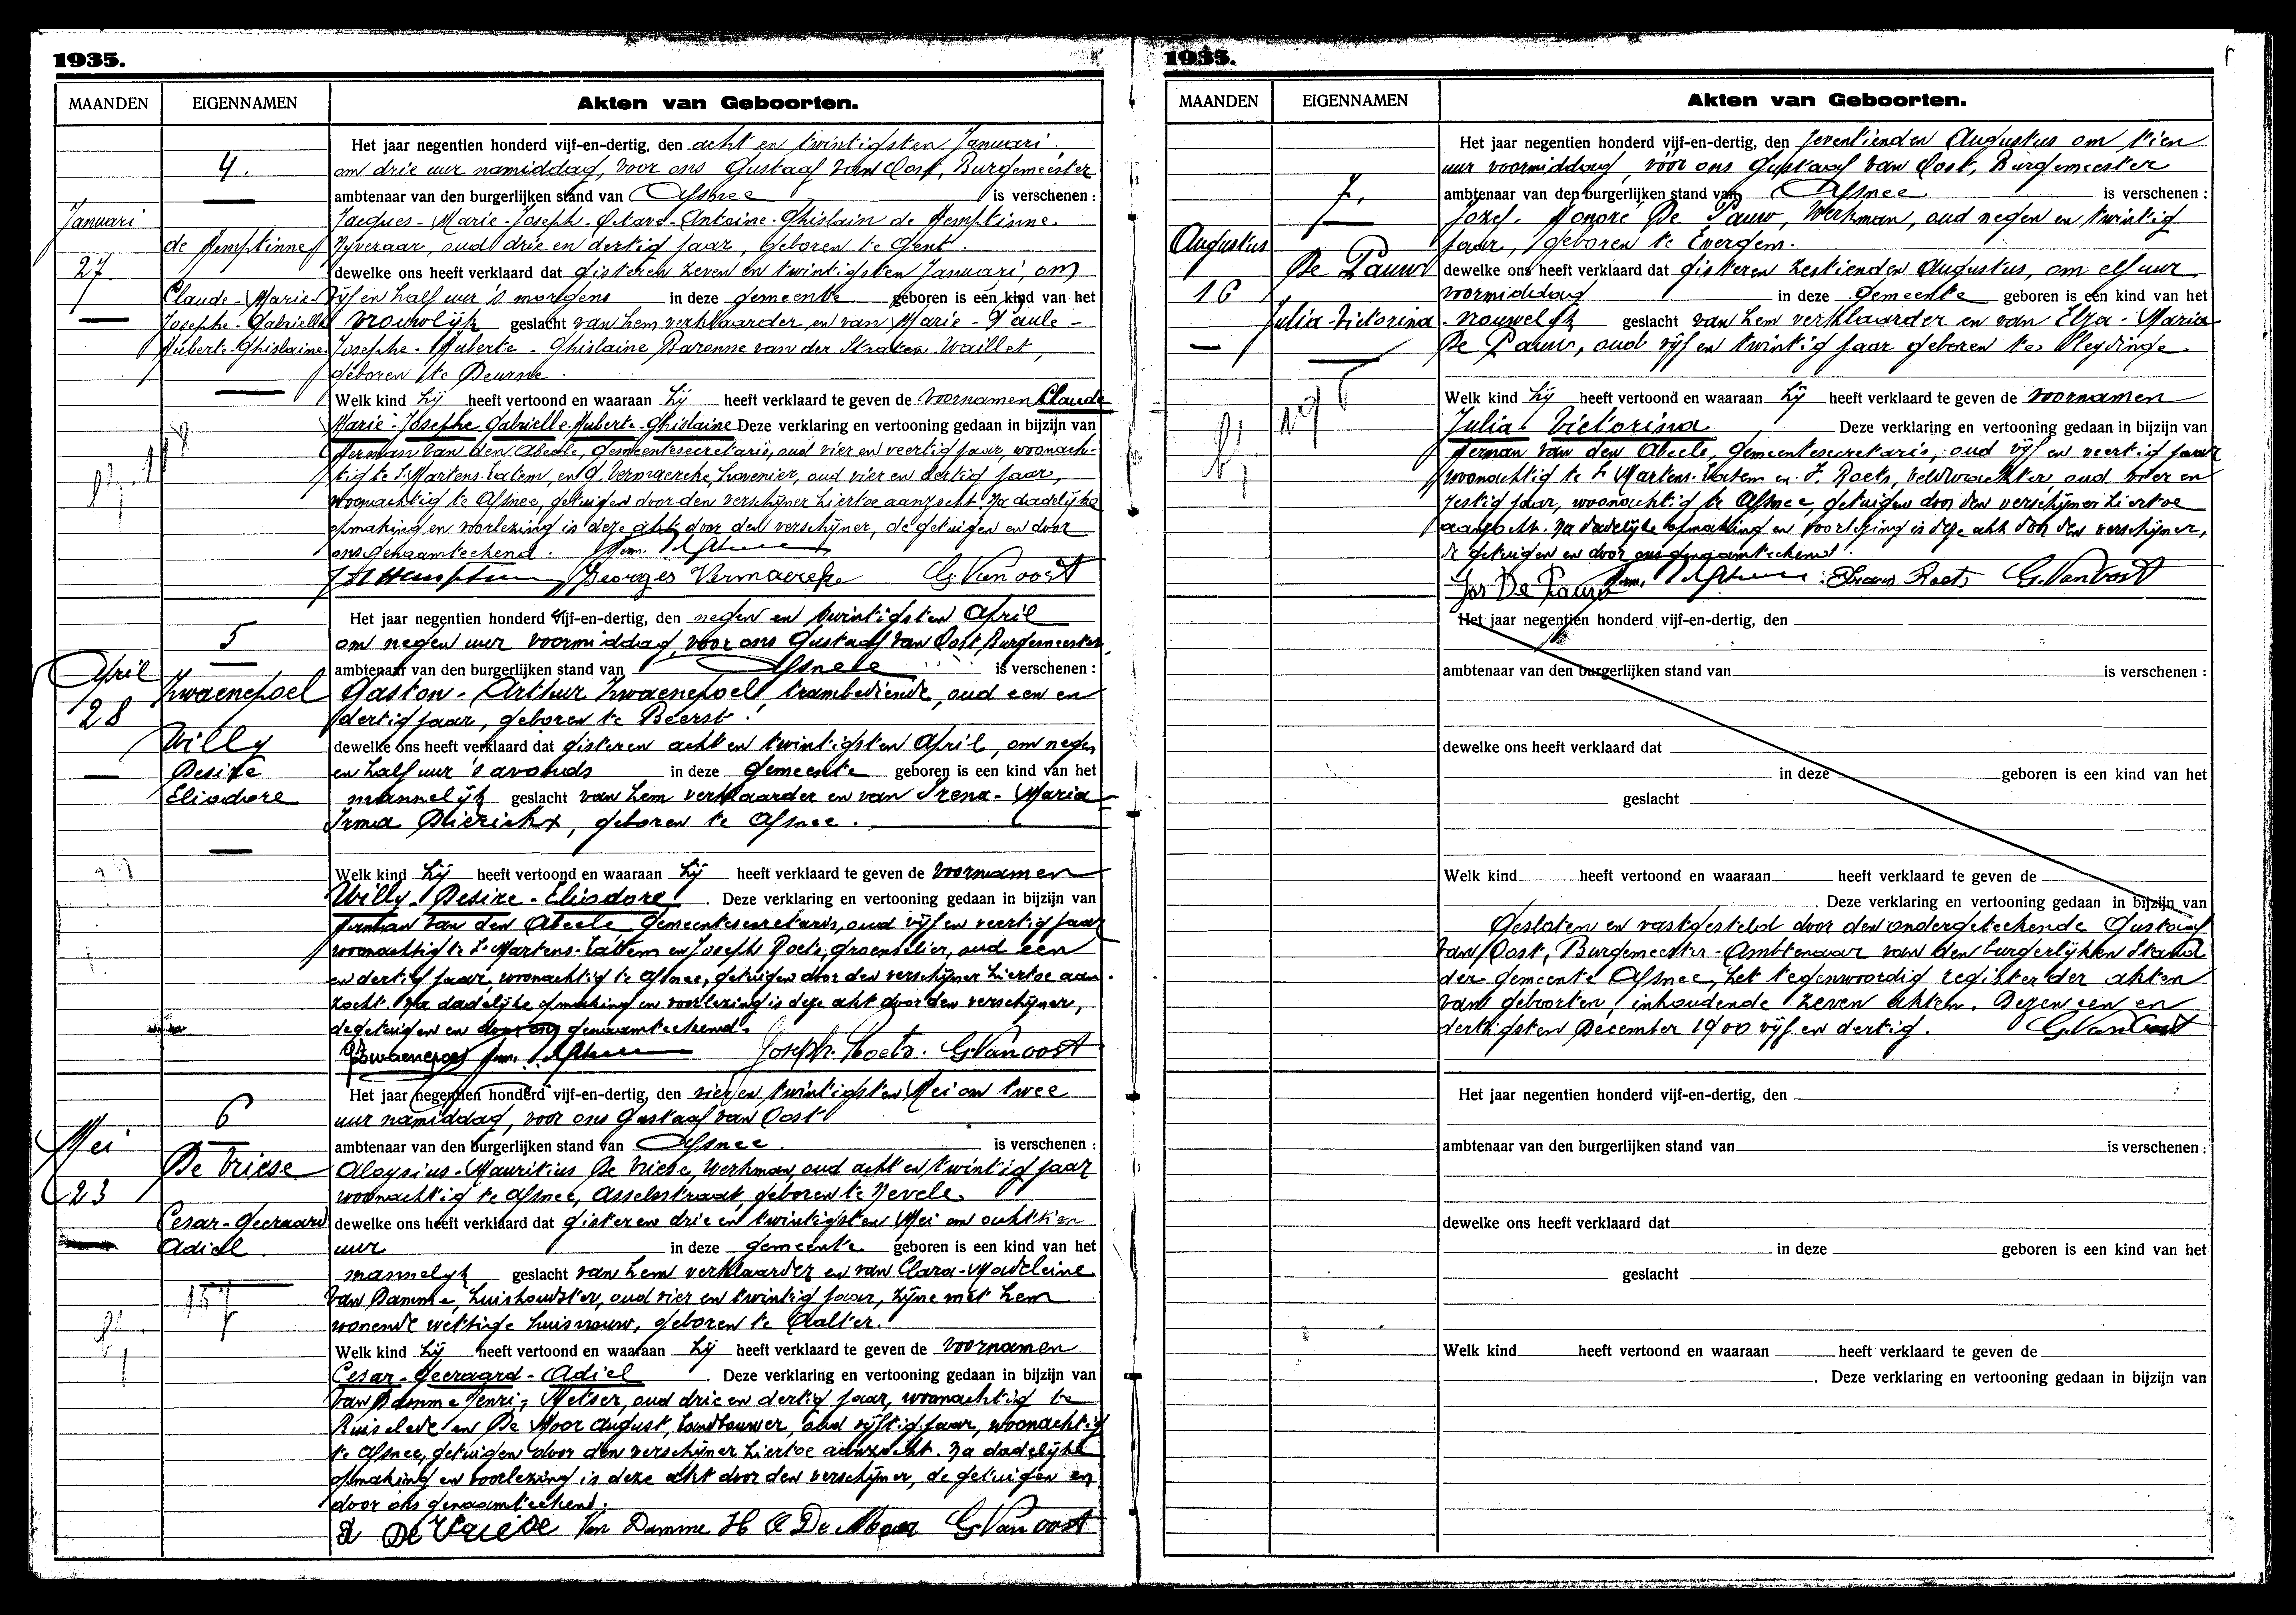 1935.
MAANDEN EIGENNAMEN Akten van Geboorten.
4.
Januari
27
de Hemptinne
Claude-Marie-
Josephe-Gabrielle
Huberte-Ghislaine
Het jaar negentien honderd vijf-en-dertig, den acht en twintigsten Januari
om drie uur namiddag, voor ons Gustaaf Van Oost, Burgemeester
ambtenaar van den burgerlijken stand van Afsnee is verschenen :
Jacques-Marie-Joseph-Octave-Antoine-Ghislain de Hemptinne
Nijveraar, oud drie en dertig jaar, geboren te Gent.
dewelke ons heeft verklaard dat gisteren zeven en twintigsten Januari, om
vijf en half uur 's morgens in deze gemeente geboren is een kind van het
vrouwlijk geslacht van hem verklaarder en van Marie-Paule-
Josephe-Huberte-Ghislaine Baronne van der Straten Waillet,
geboren te Deurne.
Welk kind hij heeft vertoond en waaraan hij heeft verklaard te geven de voornamen Claude
Marie-Josephe Gabrielle Huberte-Ghislaine Deze verklaring en vertooning gedaan in bijzijn van
Herman Van den Abeele, gemeentesecretaris, oud vier en veertig jaar, woonach-
tig te St Martens-Latem, en G. Vermaercke, hovenier, oud vier en dertig jaar,
woonachtig te Afsnee, getuigen door den verschijner hiertoe aanzocht. Na dadelijke
opmaking en voorlezing is deze akt door den verschijner, de getuigen en door
ons genaamteekend.
Georges Vermaercke G. Van oost
5
April
28
Zwaenepoel
Willy
Desire
Eliodore
Het jaar negentien honderd vijf-en-dertig, den negen en twintigsten April
om negen uur voormiddag, voor ons Gustaaf Van Oost, Burgemeester
ambtenaar van den burgerlijken stand van Afsnee is verschenen :
Gaston-Arthur Zwaenepoel, trambediende, oud een en
dertig jaar, geboren te Beerst.
dewelke ons heeft verklaard dat gisteren acht en twintigsten April, om negen
en half uur 's avonds in deze gemeente geboren is een kind van het
mannelijk geslacht van hem verklaarder en van Irena-Maria
Irma Dierickx, geboren te Afsnee.
Welk kind hij heeft vertoond en waaraan hij heeft verklaard te geven de voornamen
Willy-Desire-Eliodore. Deze verklaring en vertooning gedaan in bijzijn van
Herman Van den Abeele gemeentesecretaris, oud vijf en veertig jaar
woonachtig te St Martens-Latem en Joseph Roets, groenselier, oud een
en dertig jaar, woonachtig te Afsnee, getuigen door den verschijner hiertoe aan-
zocht. Na dadelijke opmaking en voorlezing is deze akt door den verschijner,
de getuigen en door ons genaamteekend.
Zwaenepoel Joseph. Roets. G. Van oost
6
Mei
23
De Vriese
Cesar-Geeraard
Adiel.
157
Het jaar negentien honderd vijf-en-dertig, den vier en twintigsten Mei om twee
uur namiddag, voor ons Gustaaf van Oost
ambtenaar van den burgerlijken stand van Afsnee. is verschenen :
Aloysius-Mauritius De Vriese, Werkman, oud acht en twintig jaar
woonachtig te Afsnee, Asselsstraat, geboren te Nevele.
dewelke ons heeft verklaard dat gisteren drie en twintigsten Mei om achttien
uur in deze gemeente geboren is een kind van het
mannelijk geslacht van hem verklaarder en van Clara-Madeleine
Van Damme, huishoudster, oud vier en twintig jaar, zijne met hem
wonende wettige huisvrouw, geboren te Aalter.
Welk kind hij heeft vertoond en waaraan hij heeft verklaard te geven de voornamen
Cesar-Geeraard-Adiel. Deze verklaring en vertooning gedaan in bijzijn van
Van Damme Henri, Metser, oud drie en dertig jaar, woonachtig te
Ruiselede en De Moor August, Landbouwer, oud vijftig jaar, woonachtig
te Afsnee, getuigen door den verschijner hiertoe aanzocht. Na dadelijke
opmaking en voorlezing is deze akt door den verschijner, de getuigen en
door ons genaamteekend.
A De Vriese Van Damme H A De Moor G. Van oost
1935.
MAANDEN EIGENNAMEN Akten van Geboorten.
7.
Augustus
16
De Pauw
Julia-Victorina
Het jaar negentien honderd vijf-en-dertig, den zeventienden Augustus om tien
uur voormiddag, voor ons Gustaaf van Oost, Burgemeester
ambtenaar van den burgerlijken stand van Afsnee is verschenen :
Jozef. Honoré De Pauw, Werkman, oud negen en twintig
jaar, geboren te Evergem.
dewelke ons heeft verklaard dat gisteren zestienden Augustus, om elf uur
voormiddag in deze Gemeente geboren is een kind van het
vrouwelijk geslacht van hem verklaarder en van Elza-Maria
De Pauw, oud vijf en twintig jaar geboren te Sleydinge
Welk kind hij heeft vertoond en waaraan hij heeft verklaard te geven de voornamen
Julia Victorina Deze verklaring en vertooning gedaan in bijzijn van
Herman Van den Abeele, Gemeentesecretaris, oud vijf en veertig jaar
woonachtig te St Martens-Latem en F. Roets, veldwachter, oud vier en
zestig jaar, woonachtig te Afsnee, getuigen door den verschijner hiertoe
aanzocht. Na dadelijke opmaking en voorlezing is deze akt door den verschijner,
de getuigen en door ons genaamteekend.
Jos De Pauw Frans Roets G. Van Oost
Het jaar negentien honderd vijf-en-dertig, den
ambtenaar van den burgerlijken stand van is verschenen :
dewelke ons heeft verklaard dat
in deze geboren is een kind van het
geslacht
Welk kind heeft vertoond en waaraan heeft verklaard te geven de
Deze verklaring en vertooning gedaan in bijzijn van
Gesloten en vastgesteld door den ondergeteekende Gustaaf
Van Oost, Burgemeester-Ambtenaar van den burgerlijken Stand
der gemeente Afsnee, het tegenwoordig register der akten
van geboorten, inhoudende zeven akten. Dezen een en
dertigsten December 1900 vijf en dertig. G. Van Oost
Het jaar negentien honderd vijf-en-dertig, den
ambtenaar van den burgerlijken stand van is verschenen :
dewelke ons heeft verklaard dat
in deze geboren is een kind van het
geslacht
Welk kind heeft vertoond en waaraan heeft verklaard te geven de
Deze verklaring en vertooning gedaan in bijzijn van